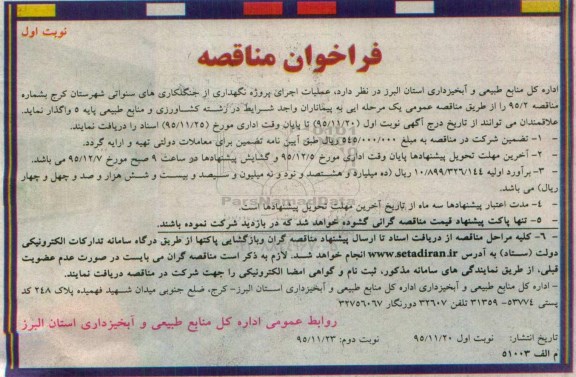 نوبت اول
فراخوان مناقصه
اداره کل منابع طبیعی و آبخیزداری استان البرز در نظر دارد، عملیات اجرای پروژه نگهداری از جنگلکاری های سنواتی شهرستان کرج بشماره
مناقصه ۹۵/۲ را از طریق مناقصه عمومی یک مرحله ایی به پیمانکاران واجد شرایط در رشته کشاورزی و منابع طبیعی پایه ۵ واگذار نماید.
علاقمندان می توانند از تاریخ درج آگهی نوبت اول (۹۵/۱۱/۲۰) تا پایان وقت اداری مورخ (۹۵/۱۱/۲۵) اسناد را دریافت نمایند.
۱- تضمین شرکت در مناقصه به مبلغ ۵۴۵/۰۰۰/۰۰۰ ریال طبق آیین نامه تضمین برای معاملات دولتی تهیه و ارایه گردد.
۲- آخرین مهلت تحویل پیشنهادها پایان وقت اداری مورخ ۹۵/۱۲/۵ و گشایش پیشنهادها در ساعت ۹ صبح مورخ ۹۵/۱۲/۷ می باشد.
۳- برآورد اولیه ۱۰/۸۹۹/۳۲۶/۱۴۴ ریال (ده میلیارد و هشتصد و نود و نه میلیون و سیصد و بیست و شش هزار و صد و چهل و چهار
ریال) می باشد.
۴- مدت اعتبار پیشنهادها سه ماه از تاریخ آخرین مهلت تحویل پیشنهادها است.
۵- تنها پاکت پیشنهاد قیمت مناقصه گرانی گشوده خواهد شد که در بازدید شرکت نموده باشند.
۶- کلیه مراحل مناقصه از دریافت اسناد تا ارسال پیشنهاد مناقصه گران وبازگشایی پاکتها از طریق درگاه سامانه تدارکات الکترونیکی
دولت (ستاد) به آدرس www.setadiran.ir انجام خواهد شد. لازم به ذکر است مناقصه گران می بایست در صورت عدم عضویت
قبلی، از طریق نمایندگی های سامانه مذکور، ثبت نام و گواهی امضا الکترونیکی را جهت شرکت در مناقصه دریافت نمایند.
- اداره کل منابع طبیعی و آبخیزداری اداره کل منابع طبیعی و آبخیزداری استان البرز- کرج، ضلع جنوبی میدان شهید فهمیده پلاک ۲۴۸ کد
پستی ۵۳۷۷۴- ۳۱۳۵۹ تلفن ۳۲۶۰۷ دورنگار ۳۲۷۵۶۰۶۷
روابط عمومی اداره کل منابع طبیعی و آبخیزداری استان البرز
تاریخ انتشار: نوبت اول ۹۵/۱۱/۲۰ نوبت دوم: ۹۵/۱۱/۲۳
م الف ۵۱۰۰۳
ParsNamadData